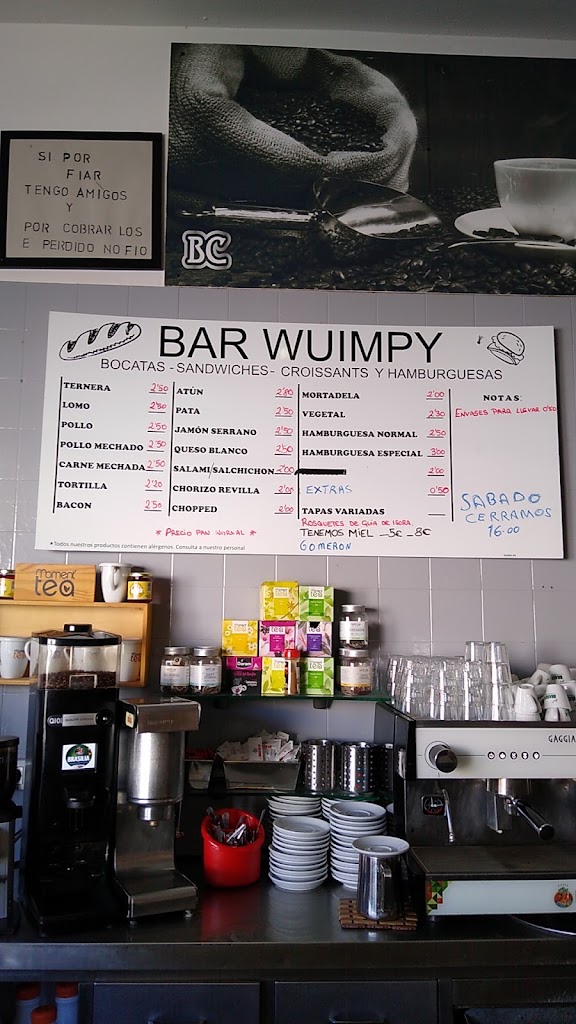 SI POR
FIAR
TENGO AMIGOS
Y
POR COBRAR LOS
E PERDIDO NO FIO
BC
BAR WUIMPY
BOCATAS - SANDWICHES - CROISSANTS Y HAMBURGUESAS
TERNERA 2'50
LOMO 2'50
POLLO 2'50
POLLO MECHADO 2'50
CARNE MECHADA 2'50
TORTILLA 2'20
BACON 2'50
ATÚN
PATA 2'50
JAMÓN SERRANO 2'50
QUESO BLANCO 2'50
SALAMI/SALCHICHON 2'00
CHORIZO REVILLA 2'00
CHOPPED 2'00
MORTADELA 2'00
VEGETAL 2'30
HAMBURGUESA NORMAL 2'50
HAMBURGUESA ESPECIAL 3'00
2'00
EXTRAS 0'50
TAPAS VARIADAS
ROSQUETES DE GUÍA DE ISORA.
TENEMOS MIEL -5€ -8€
GOMERON
NOTAS:
ENVASES PARA LLEVAR 0'50
SABADO
CERRAMOS
16:00
* PRECIO PAN NORMAL *
* Todos nuestros productos contienen alérgenos. Consulta a nuestro personal
moment
tea
BRASILIA
GAGGIA